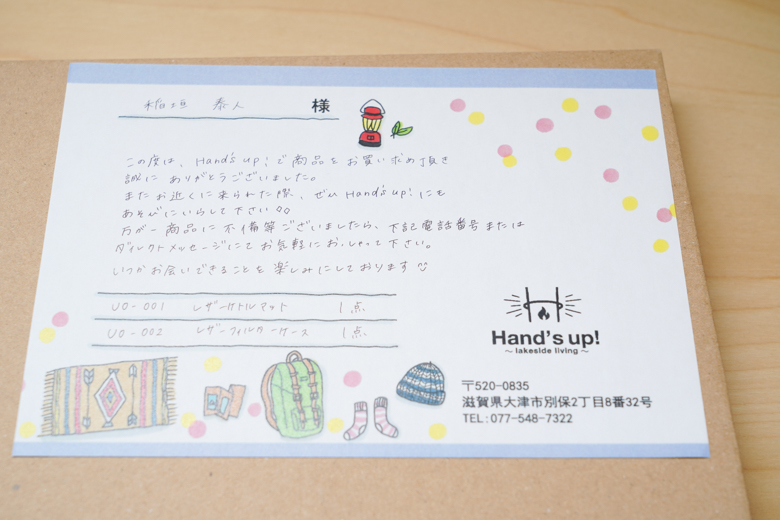 稲垣 泰人 様
この度は、Hand's up!で商品をお買い求め頂き
誠にありがとうございました。
またお近くに来られた際、ぜひHand's up!にも
あそびにいらして下さい
万が一商品に不備等ございましたら、下記電話番号または
ダイレクトメッセージにてお気軽におっしゃって下さい。
いつかお会いできることを楽しみにしております
UO-001 レザーケトルマット 1点
UO-002 レザーフィルターケース 1点
Hand's up!
〜 lakeside living 〜
〒520-0835
滋賀県大津市別保2丁目8番32号
TEL:077-548-7322